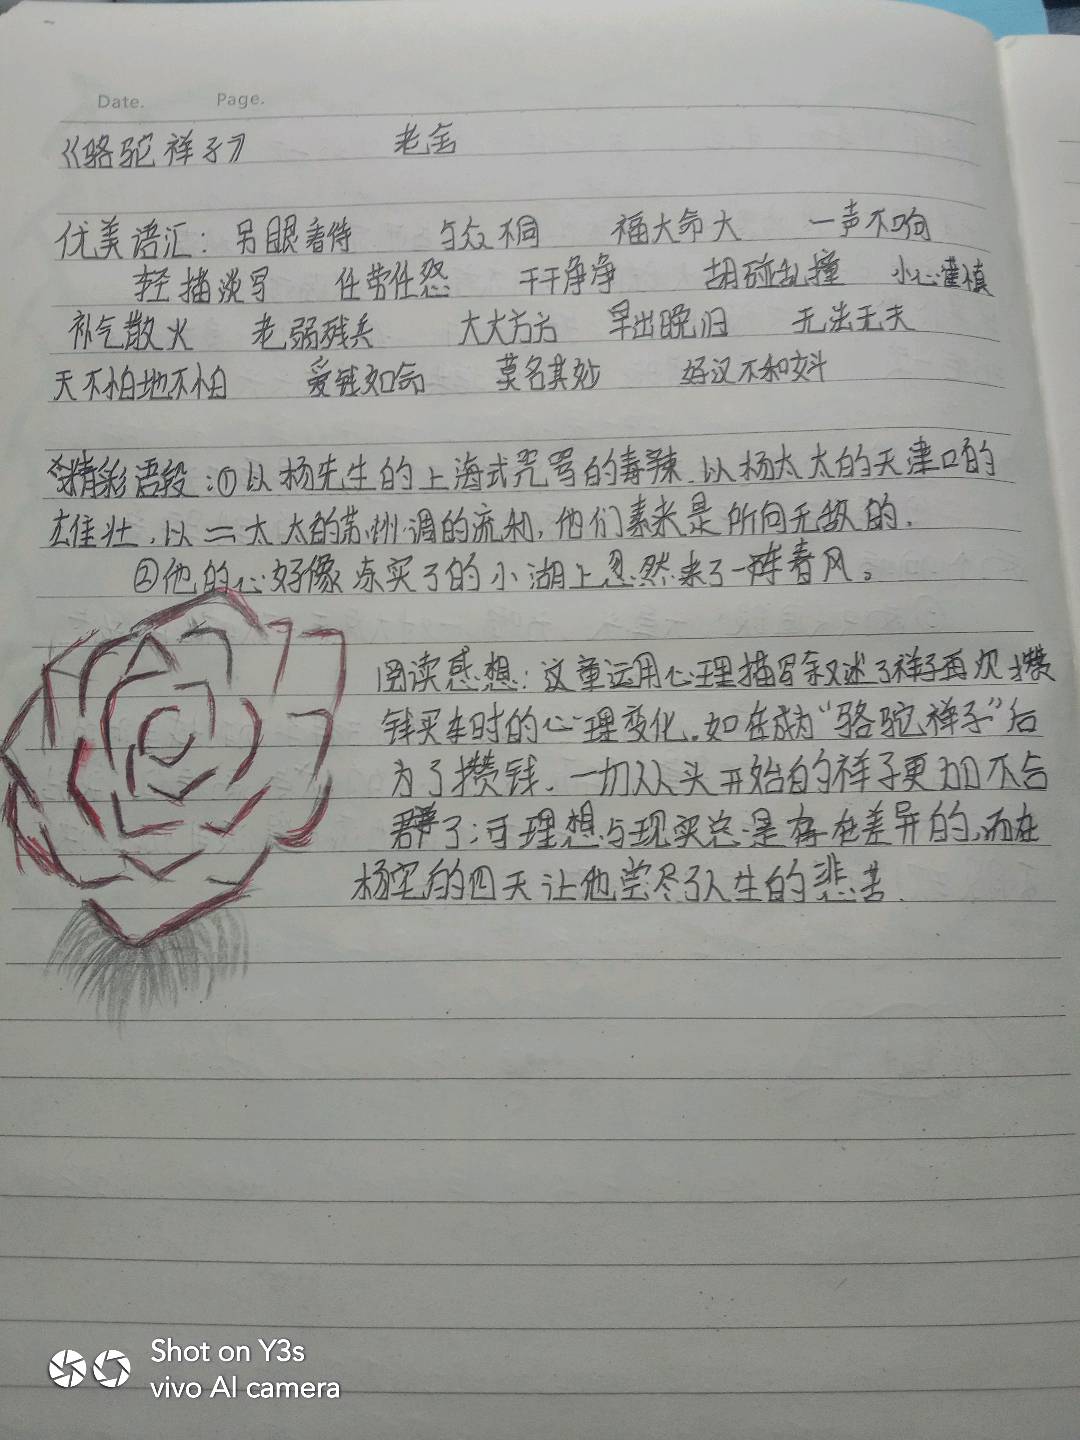 Date. Page.
《骆驼祥子》 老舍
优美语汇：另眼看待 与众不同 福大命大 一声不响
轻描淡写 任劳任怨 干干净净 胡碰乱撞 小心谨慎
补气散火 老弱残兵 大大方方 早出晚归 无法无天
天不怕地不怕 爱钱如命 莫名其妙 好汉不和女斗
精彩语段：①以杨先生的上海式咒骂的毒辣，以杨太太的天津口的
雄壮，以二太太的苏州调的流利，他们素来是所向无敌的．
②他的心好像冻实了的小湖上忽然来了一阵春风。
阅读感想：这章运用心理描写叙述了祥子再次攒
钱买车时的心理变化。如在成为“骆驼祥子”后
为了攒钱．一切从头开始的祥子更加不合
群了；可理想与现实总是存在差异的，而在
杨宅的四天让他尝尽了人生的悲苦．
Shot on Y3s
vivo AI camera